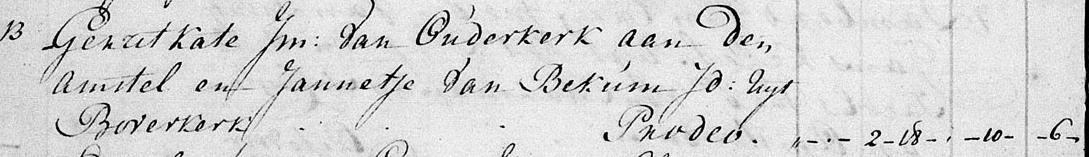 13 Gerrit Kate Jm: van Ouderkerk aan den
amstel en Jannetje van Bekum Jd: uyt
Boverkerk . . . Prodeo. „-.- 2-18-. -10- -6-